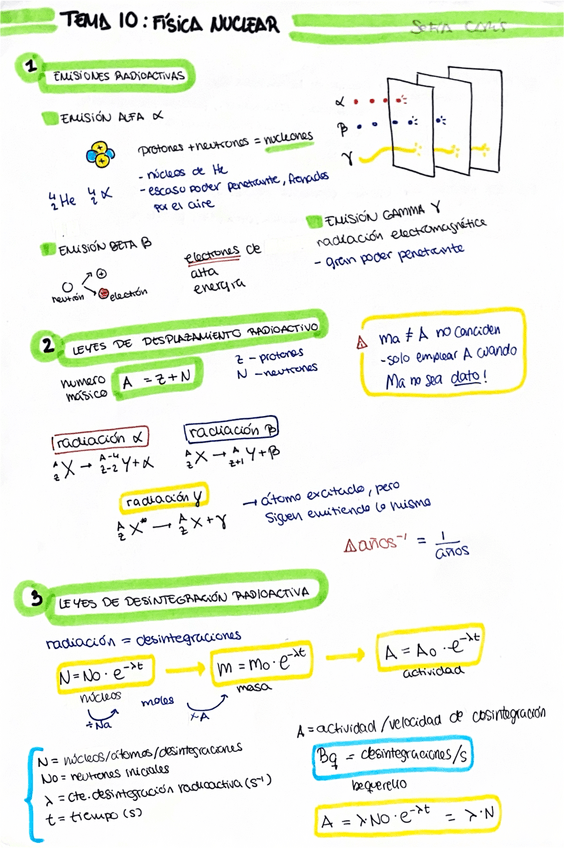 TEMA 10: FÍSICA NUCLEAR
1 EMISIONES RADIOACTIVAS
EMISIÓN ALFA α
protones + neutrones = nucleones
- núcleos de He
- escaso poder penetrante, frenados
por el aire
⁴₂He ⁴₂α
α
β
γ
EMISIÓN GAMMA γ
radiación electromagnética
- gran poder penetrante
EMISIÓN BETA β
neutrón
electrón
electrones de
alta
energía
2 LEYES DE DESPLAZAMIENTO RADIOACTIVO
numero
másico
A = Z + N
Z - protones
N - neutrones
⚠ ma ≠ A no coinciden
- solo emplear A cuando
Ma no sea dato!
radiación α
ᴬ_Z X → ᴬ⁻⁴_Z-2 Y + α
radiación β
ᴬ_Z X → ᴬ_Z+1 Y + β
radiación γ
ᴬ_Z X* → ᴬ_Z X + γ
→ átomo excitado, pero
siguen emitiendo lo mismo
⚠ años⁻¹ = 1/años
3 LEYES DE DESINTEGRACIÓN RADIOACTIVA
radiación = desintegraciones
N = N0 · e^-λt
núcleos
÷Na
moles
×A
m = m0 · e^-λt
masa
A = A0 · e^-λt
actividad
N = núcleos/átomos/desintegraciones
N0 = neutrones iniciales
λ = cte. desintegración radioactiva (s⁻¹)
t = tiempo (s)
A = actividad / velocidad de
Bq = desintegraciones/s
A = λ N0 · e^-λt = λ · N